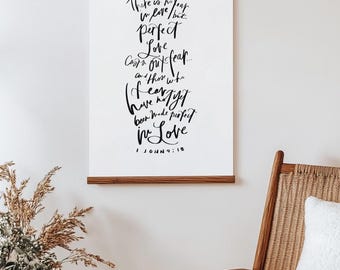 There is no fear
in love but
perfect
Love
Casts out fear
and those who
fear
have not yet
been made perfect
in Love
1 JOHN 4:18